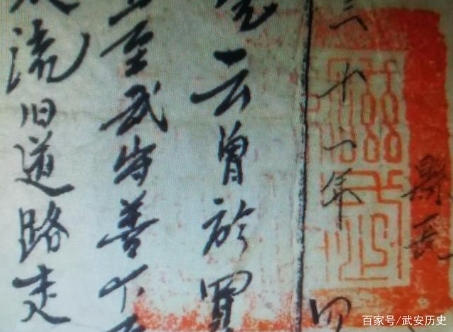 縣長
三十一年
云曾於買
至武安善
流旧道路走
百家号/武安历史